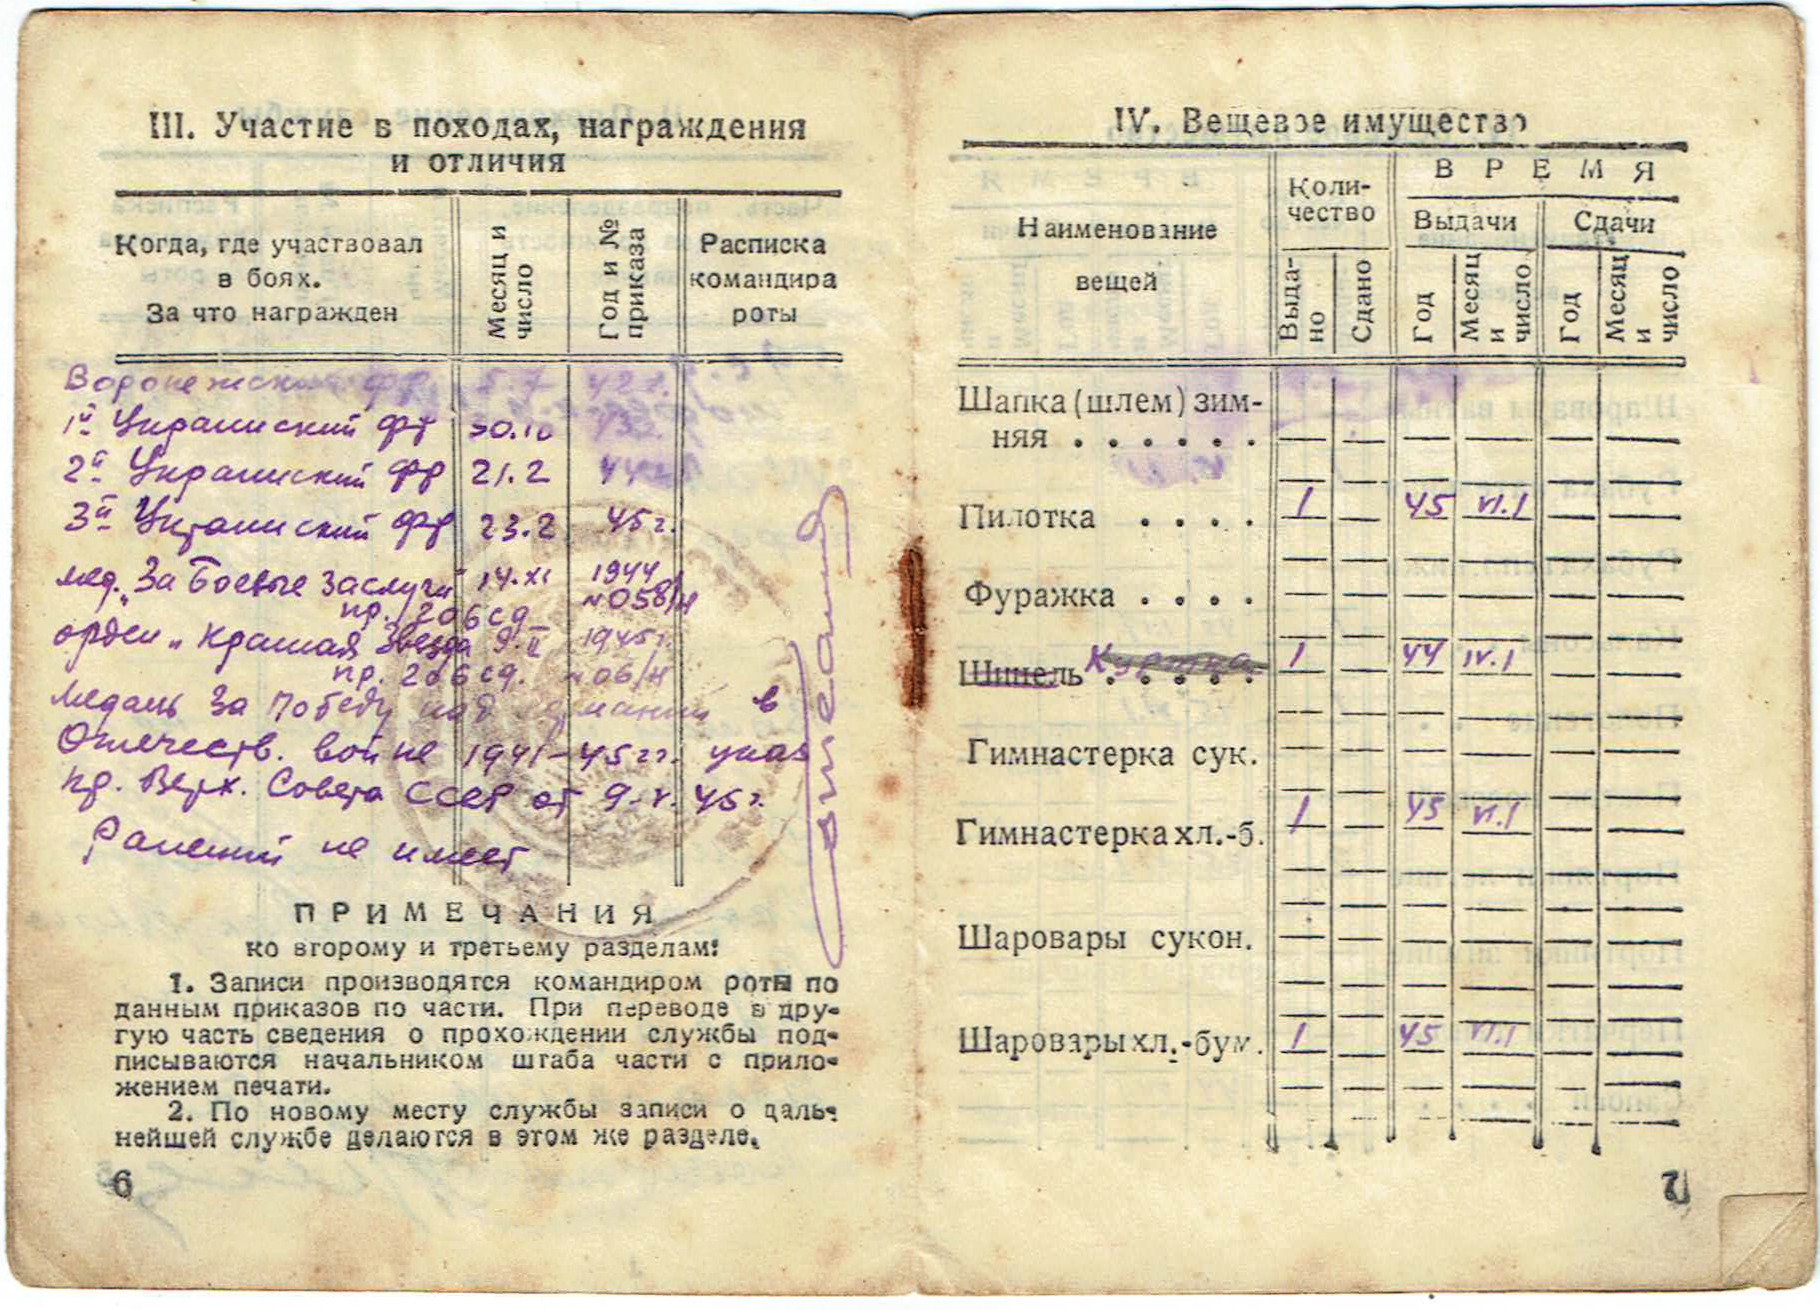 III. Участие в походах, награждения
и отличия
Когда, где участвовал
в боях.
За что награжден
Месяц и
число
Год и №
приказа
Расписка
командира
роты
Воронежский фр. 5.7 42 г.
1й Украинский фр 20.10 43 г.
2й Украинский фр 21.2 44 г.
3й Украинский фр 23.2 45 г.
мед. „За Боевые заслуги" 14.XI 1944
пр. 206 сд №058/н
орден „Красная Звезда 9.II 1945 г.
пр. 206 сд. №06/н
Медаль За Победу над Германией в
Отечеств. войне 1941-45 гг. указ
пр. Верх. Совета СССР от 9.V.45 г.
Ранений не имеет
ПРИМЕЧАНИЯ
ко второму и третьему разделам:
1. Записи производятся командиром роты по
данным приказов по части. При переводе в дру-
гую часть сведения о прохождении службы под-
писываются начальником штаба части с прило-
жением печати.
2. По новому месту службы записи о даль-
нейшей службе делаются в этом же разделе.
6
IV. Вещевое имущество
Наименование
вещей
Коли-
чество
ВРЕМЯ
Выдачи Сдачи
Выда-
но
Сдано
Год
Месяц
и
число
Год
Месяц
и
число
Шапка (шлем) зим-
няя . . . . . .
Пилотка . . . . 1 45 VI.1
Фуражка . . . .
Шинель Куртка . . . . . 1 44 IV.1
Гимнастерка сук.
Гимнастерка хл.-б. 1 45 VI.1
Шаровары сукон.
Шаровары хл.-бум. 1 45 VI.1
7